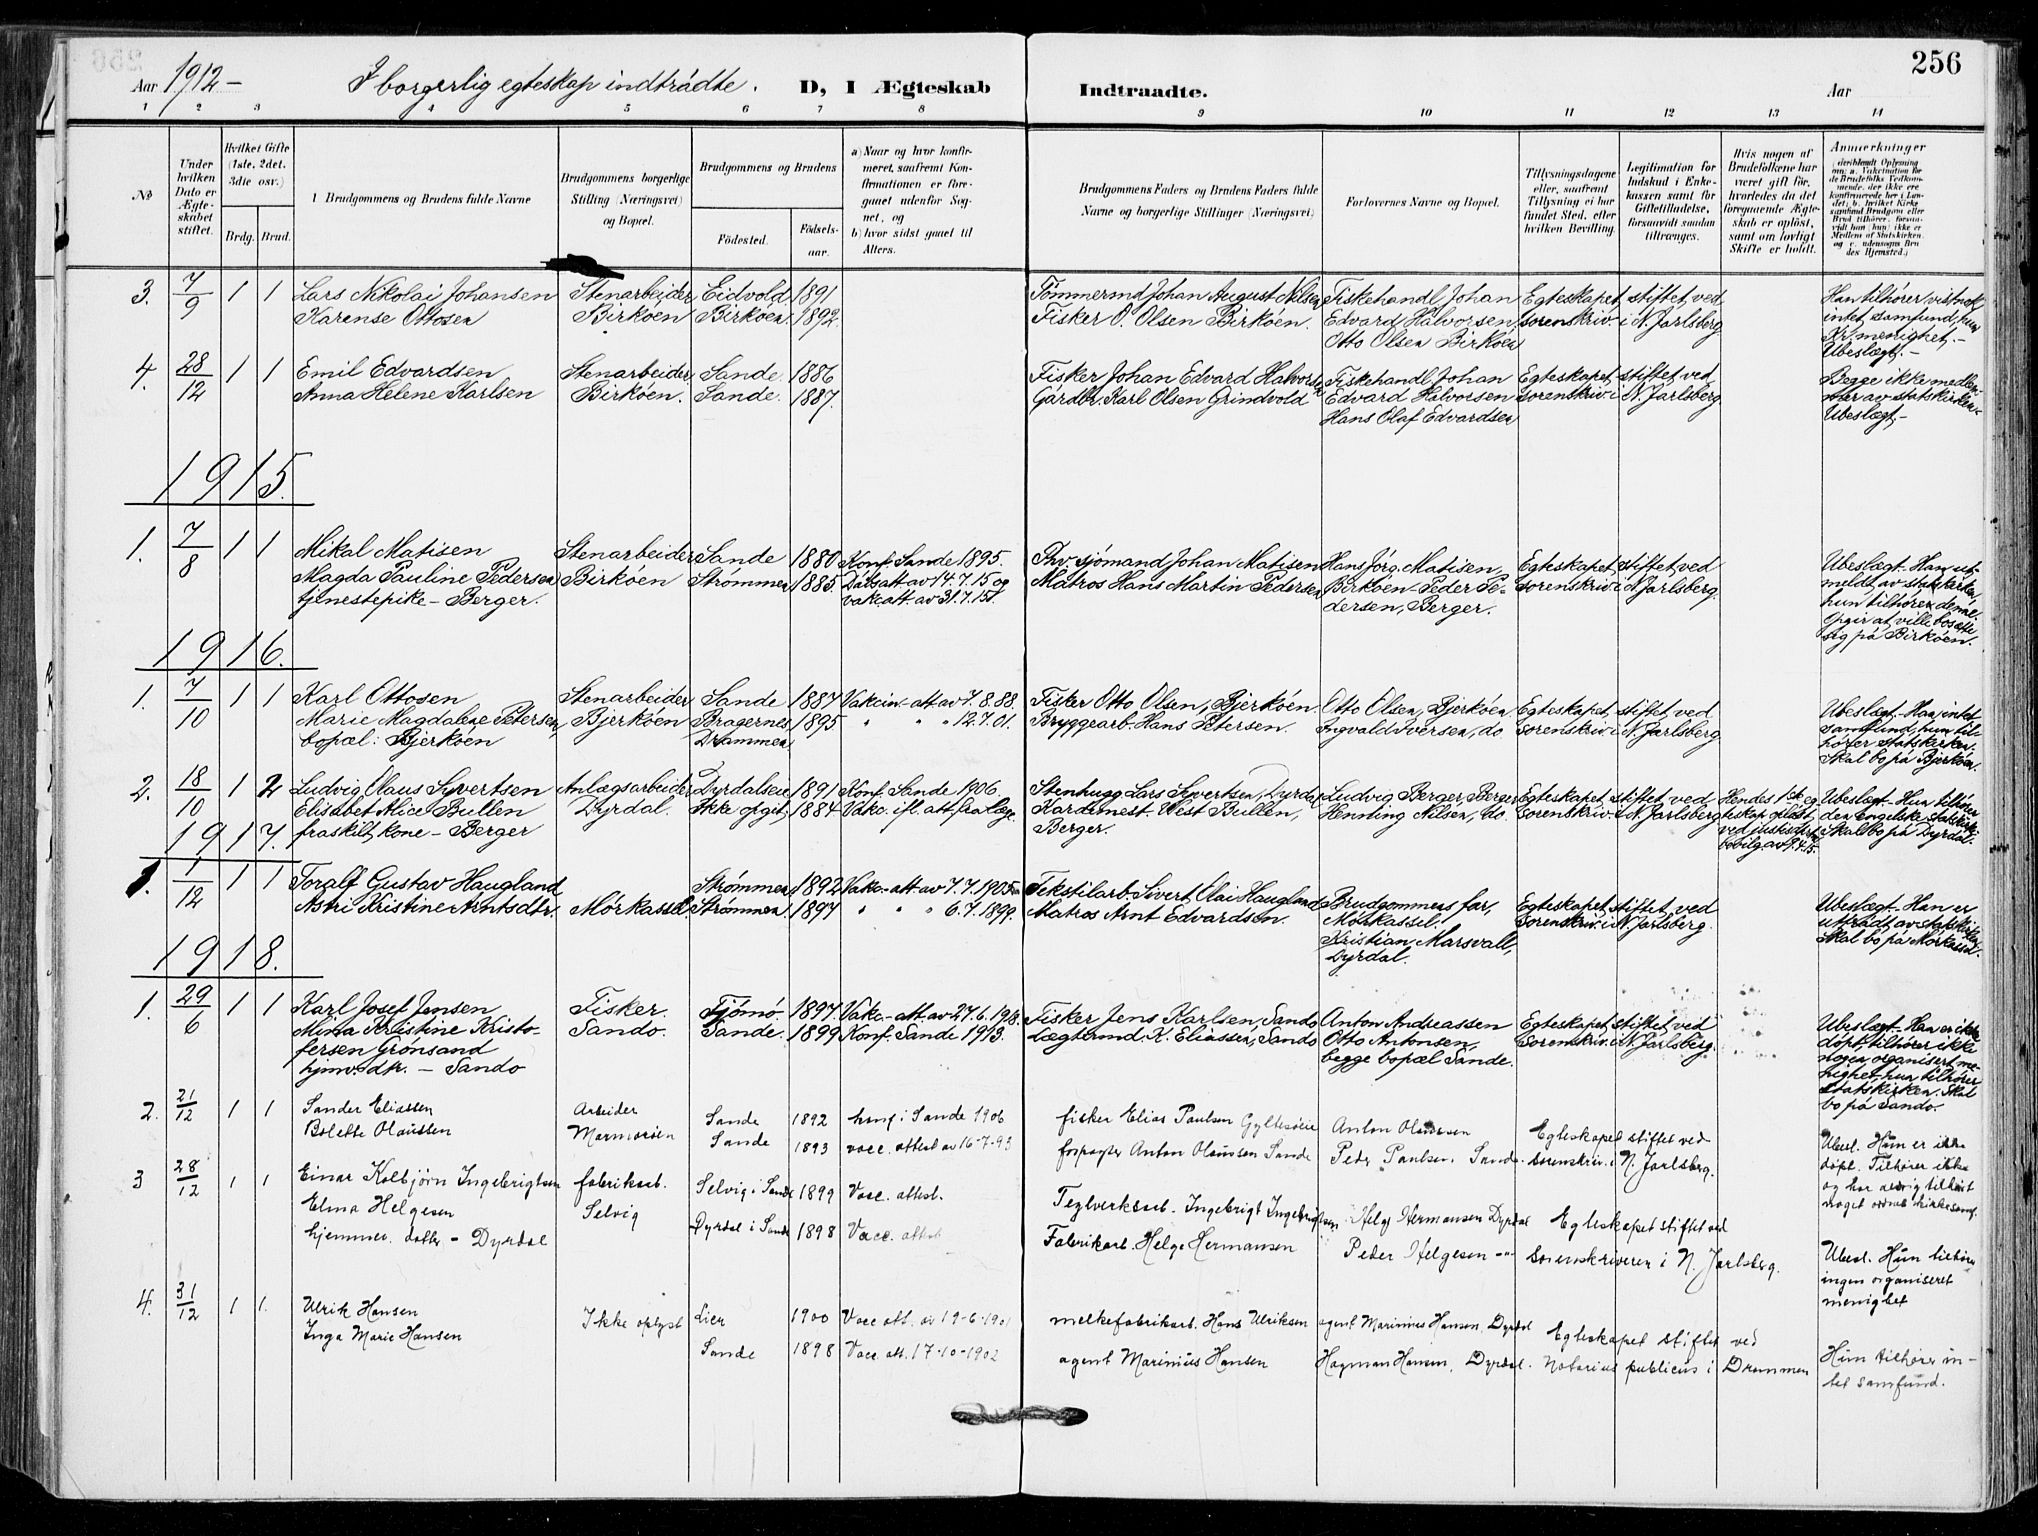 256
Aar 1912 – I borgerlig egteskap indtrådte. D, I Ægteskab Indtraadte. Aar
1 2 3 4 5 6 7 8 9 10 11 12 13 14
No
Under hvilken Dato er Ægteskabet stiftet.
Hvilket Gifte (1ste, 2det, 3die osv.)
Brdg. Brud.
Brudgommens og Brudens fulde Navne
Brudgommens borgerlige Stilling (Næringsvei) og Bopæl.
Brudgommens og Brudens
Födested.
Födselsaar.
a) Naar og hvor konfirmeret, saafremt Konfirmationen er foregaaet udenför Sognet, og
b) hvor sidst gaaet til Alters.
Brudgommens Faders og Brudens Faders fulde Navne og borgerlige Stillinger (Næringsvei)
Forlovernes Navne og Bopæl.
Tillysningsdagene eller, saafremt Tillysning ei har fundet Sted, efter hvilken Bevilling.
Legitimation for Indskud i Enkekassen samt for Giftetilladelse, forsaavidt saadan tiltrænges.
Hvis nogen af Brudefolkene har været gift för, hvorledes da det foregaaende Ægteskab er oplöst, samt om lovligt Skifte er holdt.
Anmerkninger
3. 7/9 1 1 Lars Nikolai Johansen Stenarbeider Eidvold 1891 Tömmermd Johan August Nilsen Fiskehandl. Johan Egteskapet stiftet ved Han tilhører vistnok
Karense Ottosen Birköen Birköen 1892. Fisker O. Olsen Birköen. Edvard Halvorsen, sorenskriv. i N. Jarlsberg intet samfund, hun
Otto Olsen Birköen Fr. menighet. –
Ubeslægt. –
4. 28/12 1 1 Emil Edvardsen Stenarbeider Sande. 1886 Fisker Johan Edvard Halvorsen Fiskehandl. Johan Egteskapet stiftet ved Begge ikke medlem-
Anna Helene Karlsen Birköen. Sande. 1887. Gårdbr. Karl Olsen Grindvold Edvard Halvorsen sorenskriv. i N. Jarlsberg mer av statskirken.
Hans Olaf Edvardsen Ubeslægt. –
1915.
1. 7/8 1 1 Mikal Matisen Stenarbeider Sande 1880 Konf. Sande 1895. Fhv. sjömand Johan Matisen Hans Jörg. Matisen, Egteskapet stiftet ved Ubeslægt. Han ut-
Magda Pauline Pedersen Birköen Strömmen 1885. Dåbsatt. av 14.7.15 og Matros Hans Martin Pedersen Birköen – Peder Pe- sorenskriv. i N. Jarlsberg. meldt av statskirken,
tjenestepike – Berger. vakc. att. av 31.7.15. dersen, Berger. hun tilhører denne.
Opgir at ville bosætte
sig på Birköen.
1916.
1. 7/10 1 1 Karl Ottosen Stenarbeider Sande 1887 Vakcin- att. av 7.8.88. Fisker Otto Olsen, Bjerköen Otto Olsen, Bjerköen Egteskapet stiftet ved Ubeslægt. Han intet
Marie Magdalene Petersen, Bjerköen Bragernes 1895 " " " 12.7.01. Bryggearb. Hans Petersen. Ingvald Iversen, do. sorenskriv. i N. Jarlsberg samfund, hun til-
bopæl: Bjerköen Drammen hörer statskirken.
Skal bo på Bjerköen.
2. 18/10 1 2 Ludvig Olaus Syvertsen Anlægsarbeider Dyrdalseie 1891 Konf. Sande 1906. Stenhugg. Lars Syvertsen, Dyrdal Ludvig Berger, Berger Egteskapet stiftet ved Hendes 1ste eg- Ubeslægt – Hun tilhører
Elisabet Alice Bullen Dyrdal. Ikke opgit. 1884 Vakc. ifl. att. fra læge. Kardemest. West Bullen, Henning Nilsen, do. sorenskriv. i N. Jarlsberg teskap opløst den engelske statskirke
fraskilt kone – Berger Berger. ved justisdept. Skal bo på Dyrdal.
bevilg. av 9.4.15.
1917.
1. 1/12 1 1 Toralf Gustav Haugland Strömmen 1892 Vakc. – att. av 7.7.1905 Tekstilarb. Sivert Olai Haugland Brudgommens far, Egteskapet stiftet ved Ubeslægt – Han er
Astri Kristine Arntsdtr. Mörkassel Strömmen. 1897 " " " 6.7.1899. Matros Arnt Edvardsen. Mörkassel. Sorenskriv. i N. Jarlsberg. utträdt av statskirken
Kristian Marsvall, Skal bo på Mörkassel.
Dyrdal.
1918.
1. 29/6 1 1 Karl Josef Jensen Fisker. Tjömö. 1897. Vakc. – att. av 27.6.1918. Fisker Jens Karlsen, Sando Anton Andreassen Egteskapet stiftet ved Ubeslægt – Han er ikke
Mina Kristine Kristo- Sando. Sande. 1899 Konf. Sande 1913. Lægtermd. K. Eliassen, Sando Otto Antonsen, Sorenskriv. i N. Jarlsberg. döpt, tilhører ikke
fersen Grönsand begge bopæl Sande. nogen organisert me-
hjmv. dtr. – Sando nighet, hun tilhører
statskirken. Skal
bo på Sando.
2. 21/12 1 1 Sander Eliassen Arbeider Sande 1892 konf. i Sande 1906 fisker Elias Paulsen Gyltesöeie Anton Olaussen Egteskapet stiftet ved Ubesl. Hun er ikke
Bolette Olaussen Marmorøen Sande 1893 vacc. attest av 16-7-93 forpagter Anton Olaussen Sande Peder Paulsen. Sande. sorenskriv. i N. Jarlsberg. döpt. Tilhører ikke
og har aldrig tilhört
noget ordnet kirkesamf.
3 28/12 1 1 Einar Kolbjörn Ingebrigtsen fabriksarb. Selvig i Sande 1899 Vacc. attest. Teglverksarb. Ingebrigt Ingebrigtsen Helge Hermansen Dyrdal Egteskapet stiftet ved Ubesl. Hun tilhører
Elma Helgesen Selvig Dyrdal i Sande 1898 Vacc. attest Fabrikarb. Helge Hermansen Peder Helgesen –"– sorenskriveren i N. Jarlsberg. ingen organiseret
hjemmev. datter – Dyrdal menighet
4. 31/12 1 1. Ulrik Hansen Ikke oplyst Lier 1900 Vacc. att. av 19-6-1901 melkefabrikarb. Hans Ulriksen agent Marinius Hansen, Dyrdal Egteskapet stiftet ved Hun tilhører in-
Inga Marie Hansen Sande 1898 Vacc. att. 17-10-1902 agent Marinius Hansen Hagman Hansen, Dyrdal. Notarius publicus i Drammen tet samfund.